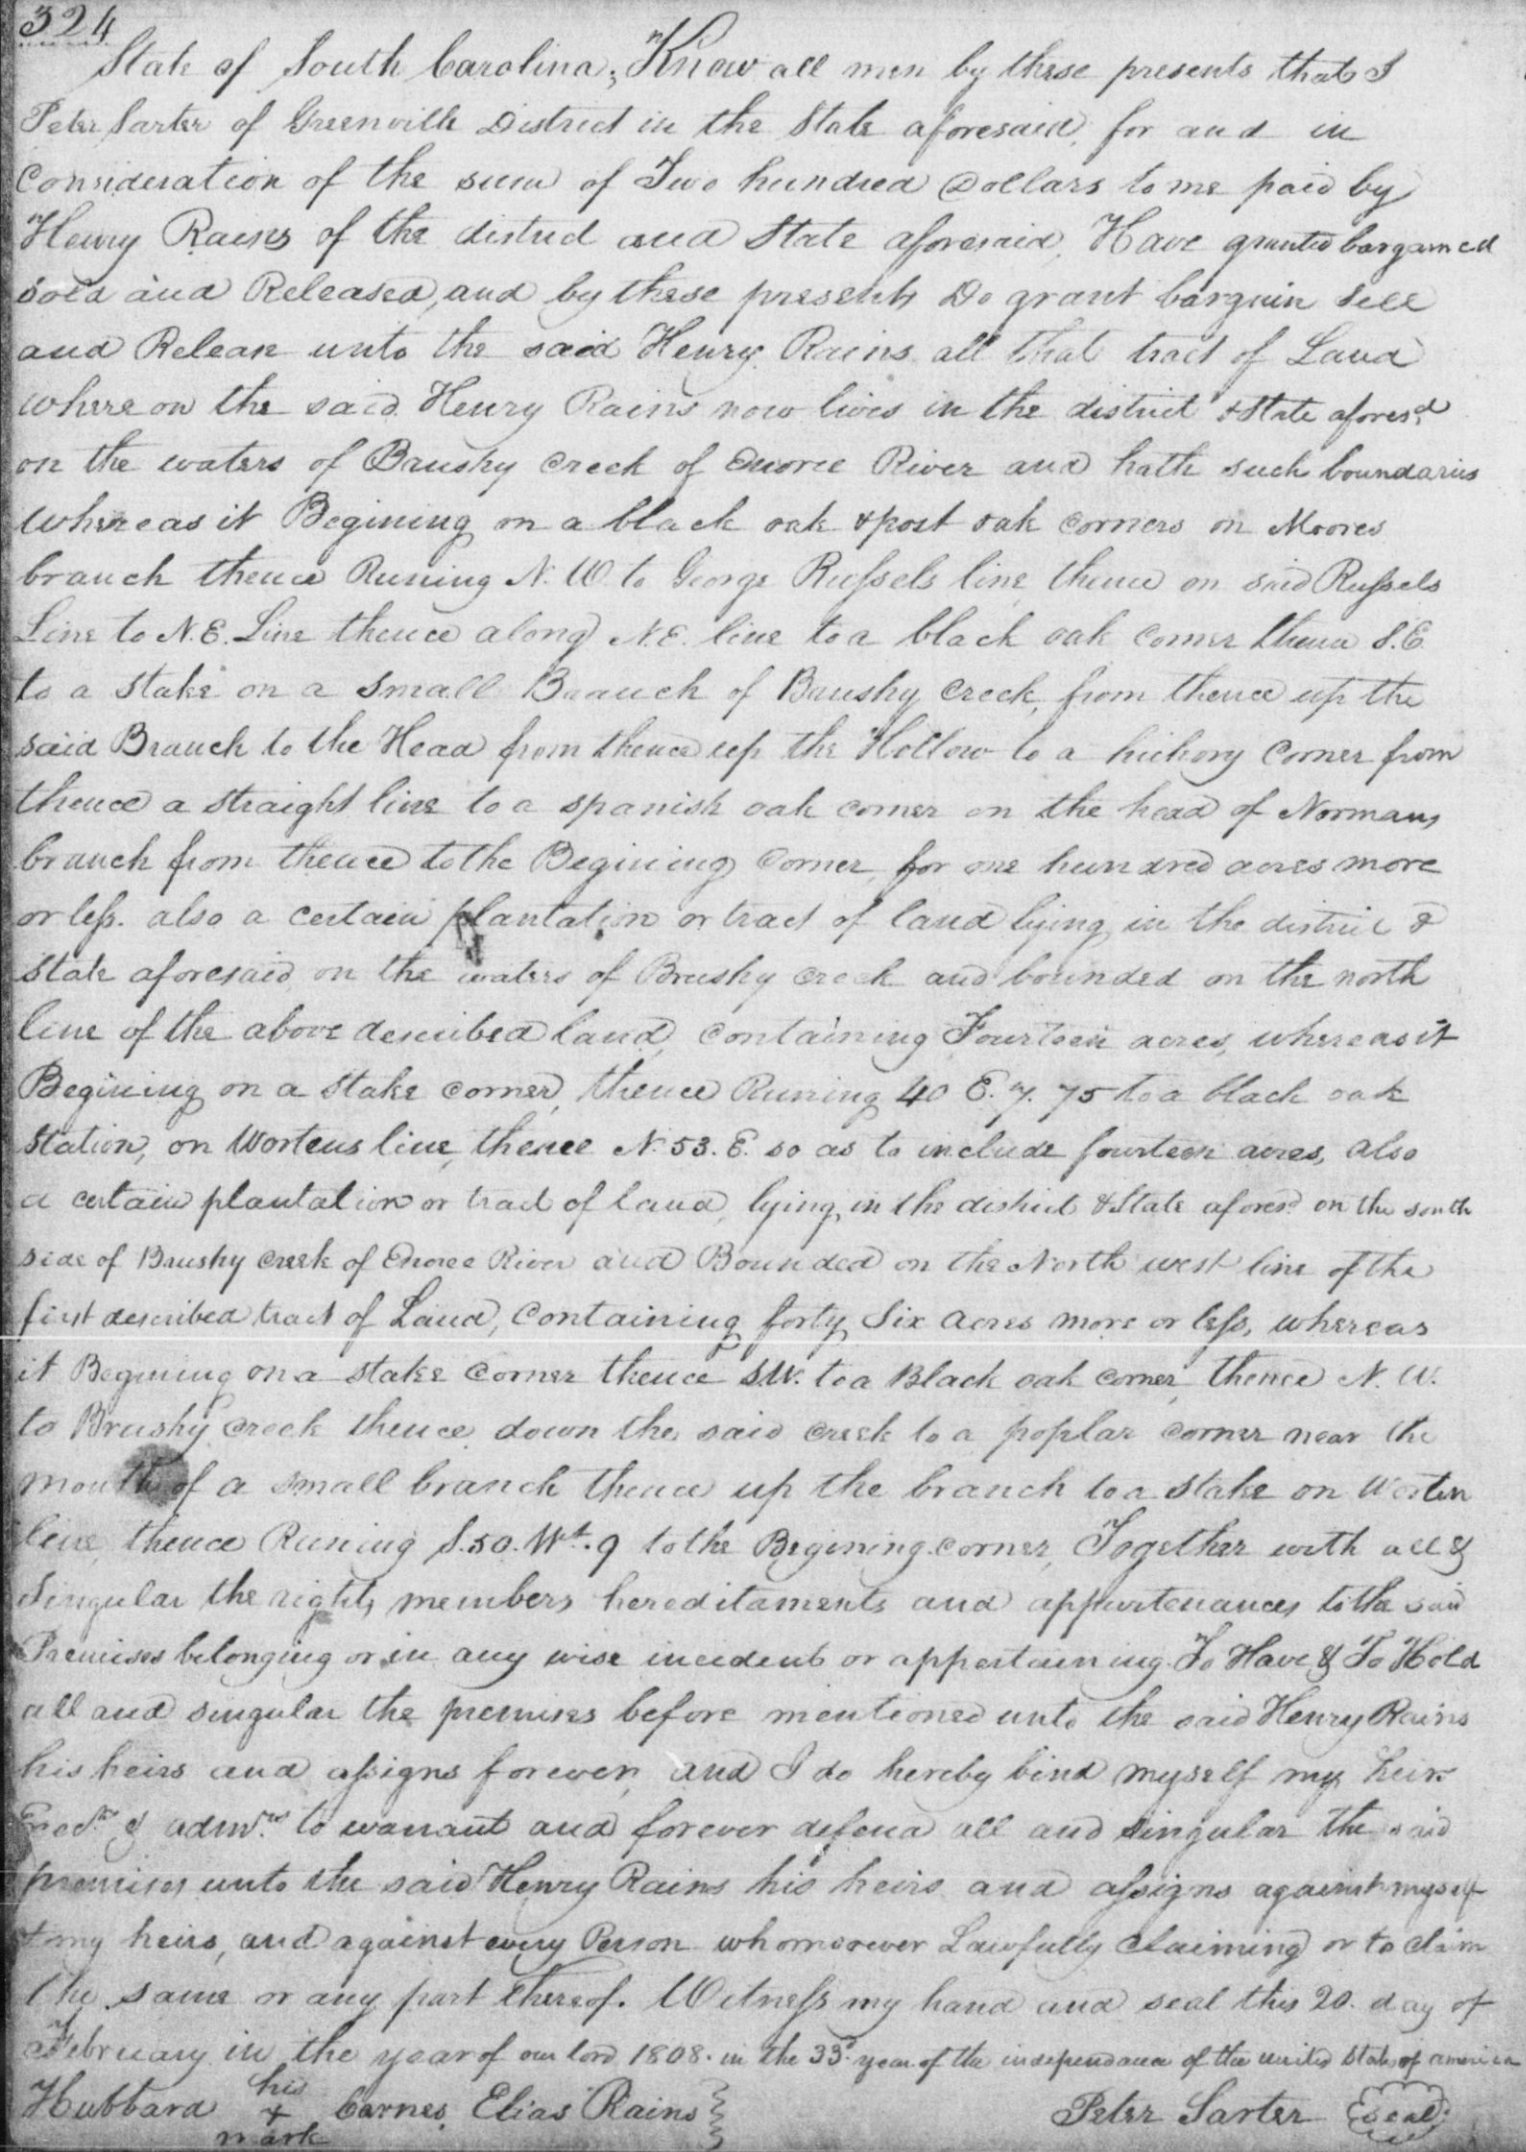 324
State of South Carolina; Know all men by these presents that I
Peter Sarter of Greenville District in the State aforesaid, for and in
Consideration of the sum of Two hundred Dollars to me paid by
Henry Rains of the district and State aforesaid, Have granted bargained
sold and Released, and by these presents Do grant bargain sell
and Release unto the said Henry Rains all that tract of Land
where on the said Henry Rains now lives in the district & State aforesd
on the waters of Brushy Creek of Enoree River and hath such boundaries
whereas it Begining on a black oak & post oak corners on Moores
branch thence Runing N.W. to George Russels line, thence on said Russels
Line to N.E. Line thence along N.E. line to a black oak corner thence S.E.
to a stake on a small Branch of Brushy Creek, from thence up the
said Branch to the Head from thence up the Hollow to a hickory Corner from
thence a straight line to a spanish oak corner on the head of Normans
branch from thence to the Begining Corner, for one hundred acres more
or less. also a certain plantation or tract of land lying in the district &
State aforesaid, on the waters of Brushy creek and bounded on the north
line of the above described land, containing Fourteen acres, whereas it
Begining on a stake corner, thence Runing 40 E. 75 to a black oak
Station, on Wortens line, thence N. 53. E. so as to include fourteen acres, also
a certain plantation or tract of land, lying in the district & State aforesd on the south
side of Brushy creek of Enoree River and Bounded on the North west line of the
first described tract of Land, Containing forty Six acres more or less, whereas
it Begining on a stake corner thence S.W. to a Black oak corner, thence N.W.
to Brushy creek thence down the said creek to a poplar corner near the
mouth of a small branch thence up the branch to a stake on Worten
line, thence Runing S. 50. Wt. 9 to the Begining corner, Together with all &
Singular the rights, members hereditaments and appurtenances to the said
Premises belonging or in any wise incident or appertaining. To Have & To Hold
all and singular the premises before mentioned unto the said Henry Rains
his heirs and assigns forever, and I do hereby bind myself my heirs
& to warrant and forever defend all and singular the said
premises unto the said Henry Rains his heirs and assigns against myself
& my heirs, and against every Person whomsoever Lawfully Claiming or to claim
the same or any part thereof. Witness my hand and seal this 20. day of
February in the year of our lord 1808. in the 33d year of the independance of the united States of america
his
Hubbard + barnes Elias Rains Peter Sarter seal
mark